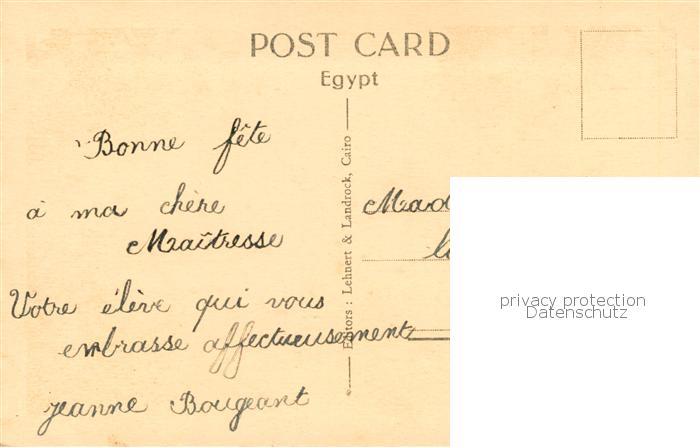 POST CARD
Egypt
Bonne fête
à ma chère
Maîtresse
Votre élève qui vous
embrasse affectueusement
Jeanne Bougeant
Editors : Lehnert & Landrock, Cairo
privacy protection
Datenschutz